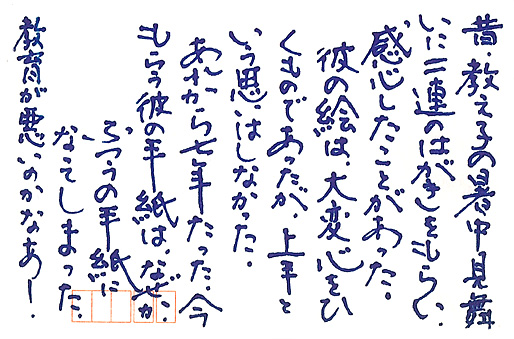 昔、教え子の暑中見舞
いに二連のはがきをもらい、
感心したことがあった。
彼の絵は、大変心をひ
くものであったが、上手と
いう思いはしなかった。
あれから七年たった。今
もらう彼の手紙は、なぜか、
ふつうの手紙に
なってしまった。
教育が悪いのかなあー。